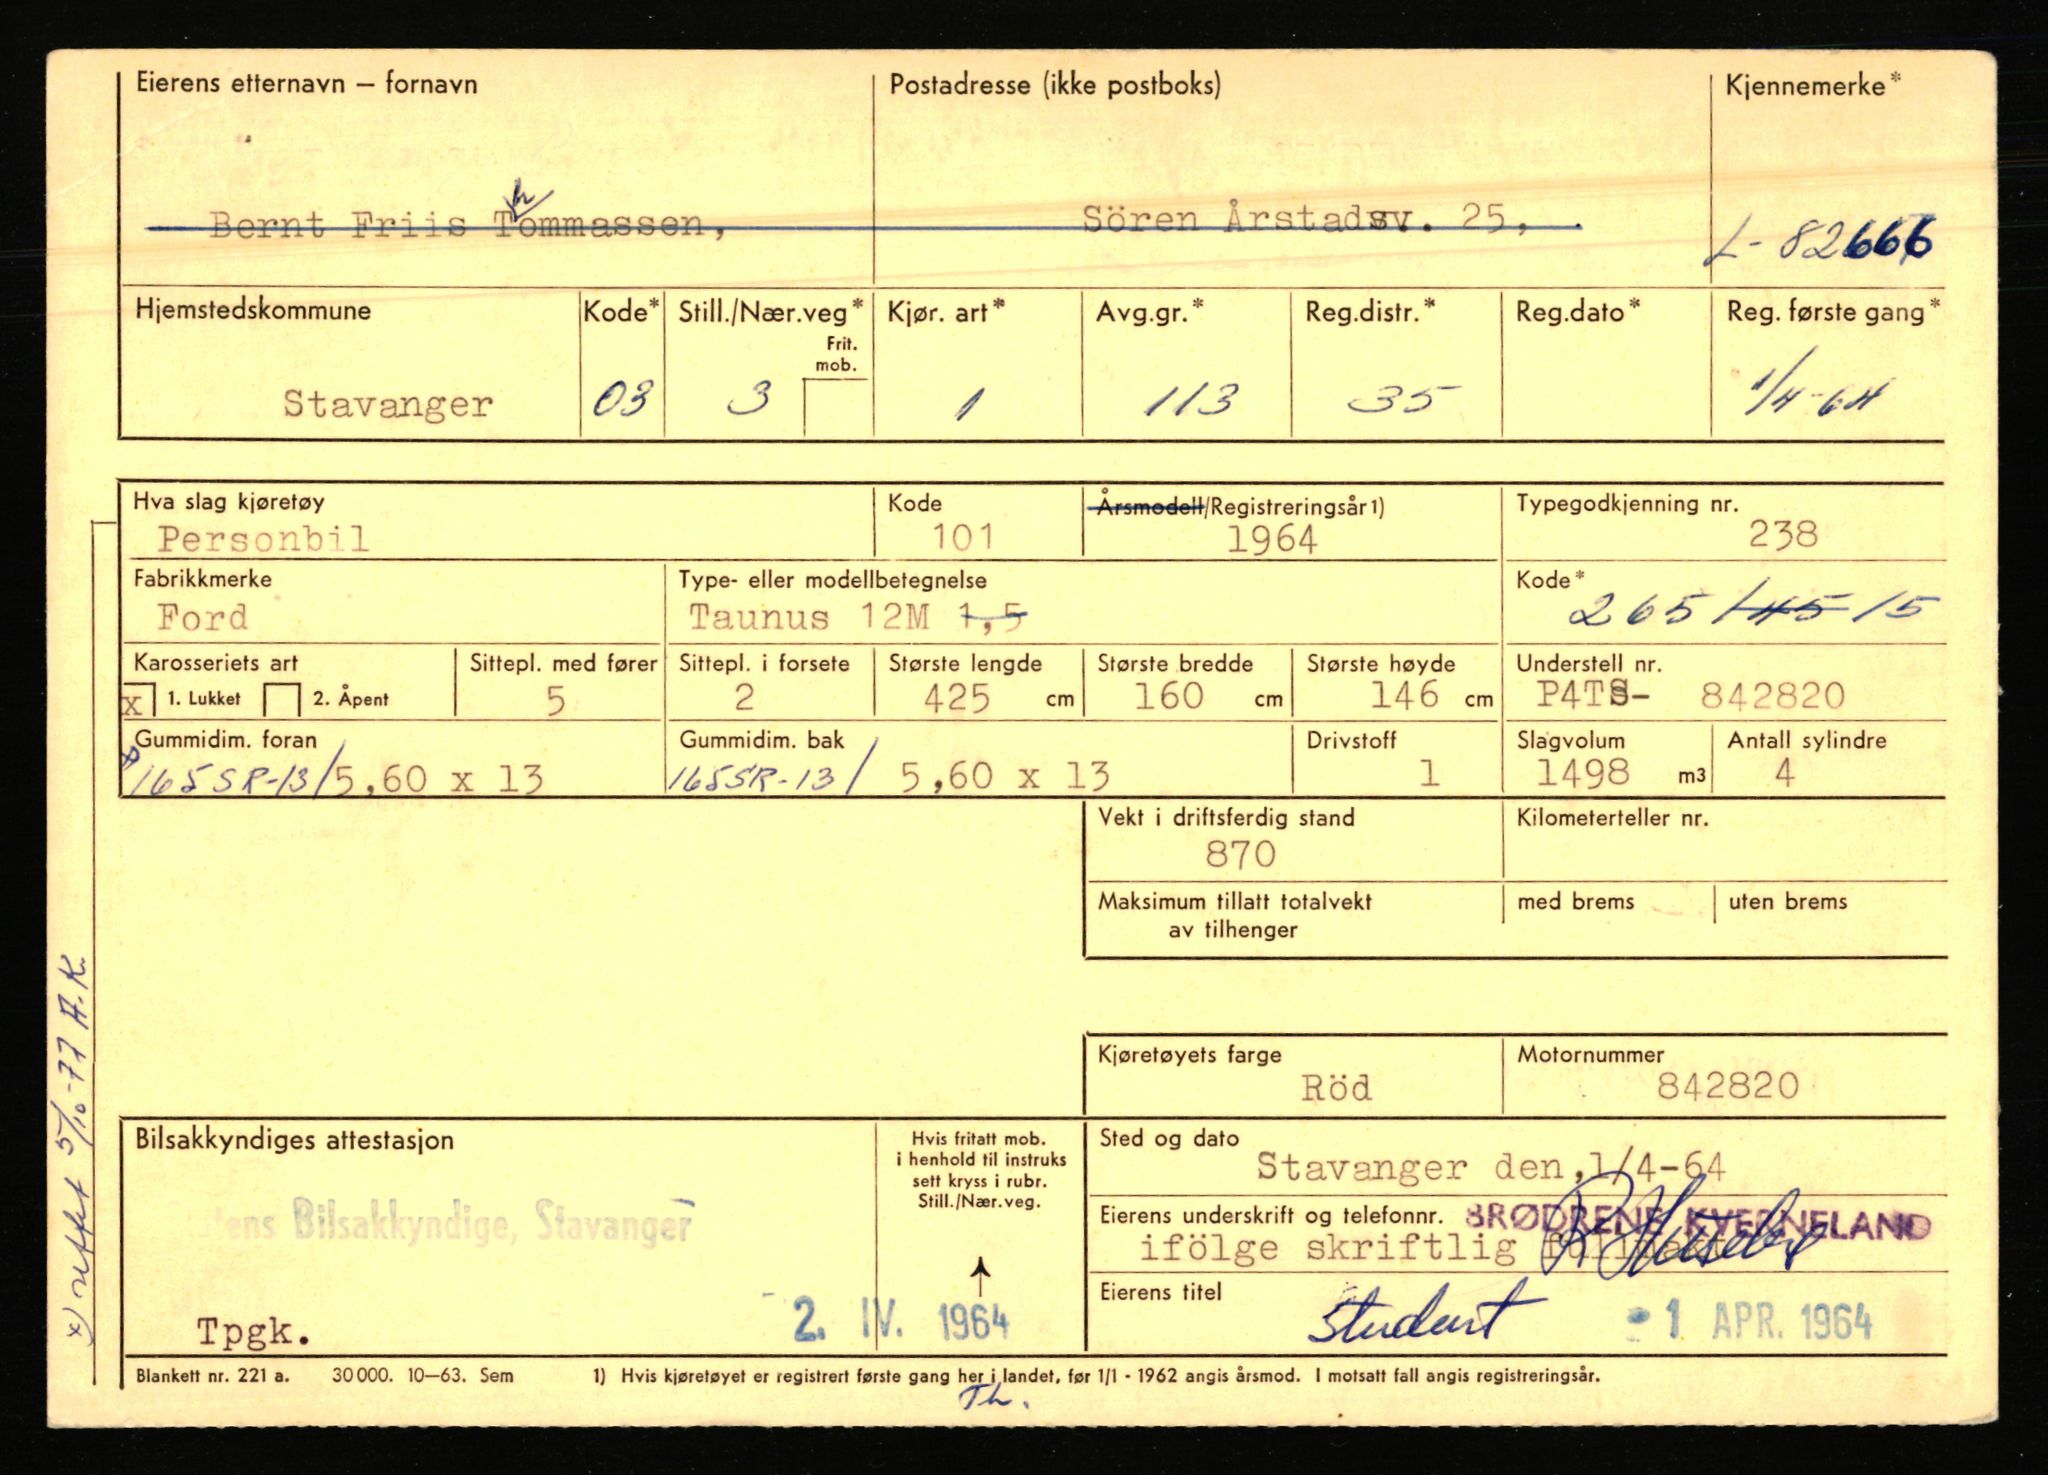 Eierens etternavn – fornavn Postadresse (ikke postboks) Kjennemerke*
h
Bernt Friis Tommassen, Sören Årstadsv. 25, L- 82666
Hjemstedskommune Kode* Still./Nær.veg* Kjør. art* Avg.gr.* Reg.distr.* Reg.dato* Reg. første gang*
Frit.
mob.
Stavanger 03 3 1 113 35 1/4-64
Hva slag kjøretøy Kode Årsmodell/Registreringsår1) Typegodkjenning nr.
Personbil 101 1964 238
Fabrikkmerke Type- eller modellbetegnelse Kode*
Ford Taunus 12M 1,5 265/45 15
Karosseriets art Sittepl. med fører Sittepl. i forsete Største lengde Største bredde Største høyde Understell nr.
x 1. Lukket 2. Åpent 5 2 425 cm 160 cm 146 cm P4TS- 842820
Gummidim. foran Gummidim. bak Drivstoff Slagvolum Antall sylindre
165SR-13/5,60 x 13 165SR-13/ 5,60 x 13 1 1498 m3 4
Vekt i driftsferdig stand Kilometerteller nr.
870
Maksimum tillatt totalvekt med brems uten brems
av tilhenger
Kjøretøyets farge Motornummer
Röd 842820
Bilsakkyndiges attestasjon
Hvis fritatt mob.
i henhold til instruks
sett kryss i rubr.
Still./Nær.veg.
Sted og dato
Stavanger den,1/4-64
Bilsakkyndige, Stavanger
Eierens underskrift og telefonnr. BRØDRENE KVERNELAND
ifölge skriftlig fullmakt
Eierens titel
Student - 1 APR. 1964
Tpgk. 2. IV. 1964
Blankett nr. 221 a. 30 000. 10–63. Sem 1) Hvis kjøretøyet er registrert første gang her i landet, før 1/1 - 1962 angis årsmod. I motsatt fall angis registreringsår.
Th.
x) rettet 5/10-77 A.K.